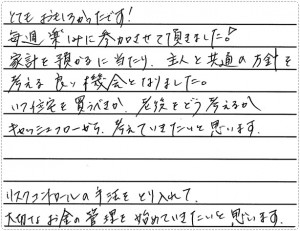 とてもおもしろかったです!
毎週楽しみに参加させて頂きました♪
家計を預かるに当たり、主人と共通の方針を
考える良い機会となりました。
いつ住宅を買うべきか、老後をどう考えるか
キャッシュフローから、考えていきたいと思います。
リスクコントロールの手法をとり入れて、
大切なお金の管理を始めていきたいと思います。